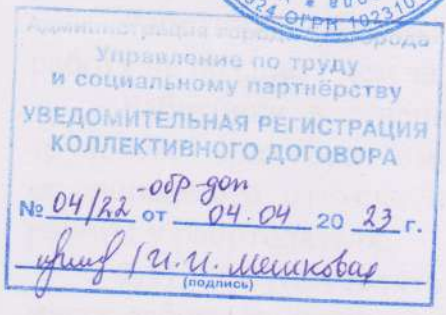 024 ОГРН 102310
Администрация города
Управление по труду
и социальному партнёрству
УВЕДОМИТЕЛЬНАЯ РЕГИСТРАЦИЯ
КОЛЛЕКТИВНОГО ДОГОВОРА
№ 04/22-обр-доп от 04.04 20 23 г.
/ И.И. Мешкова
(подпись)